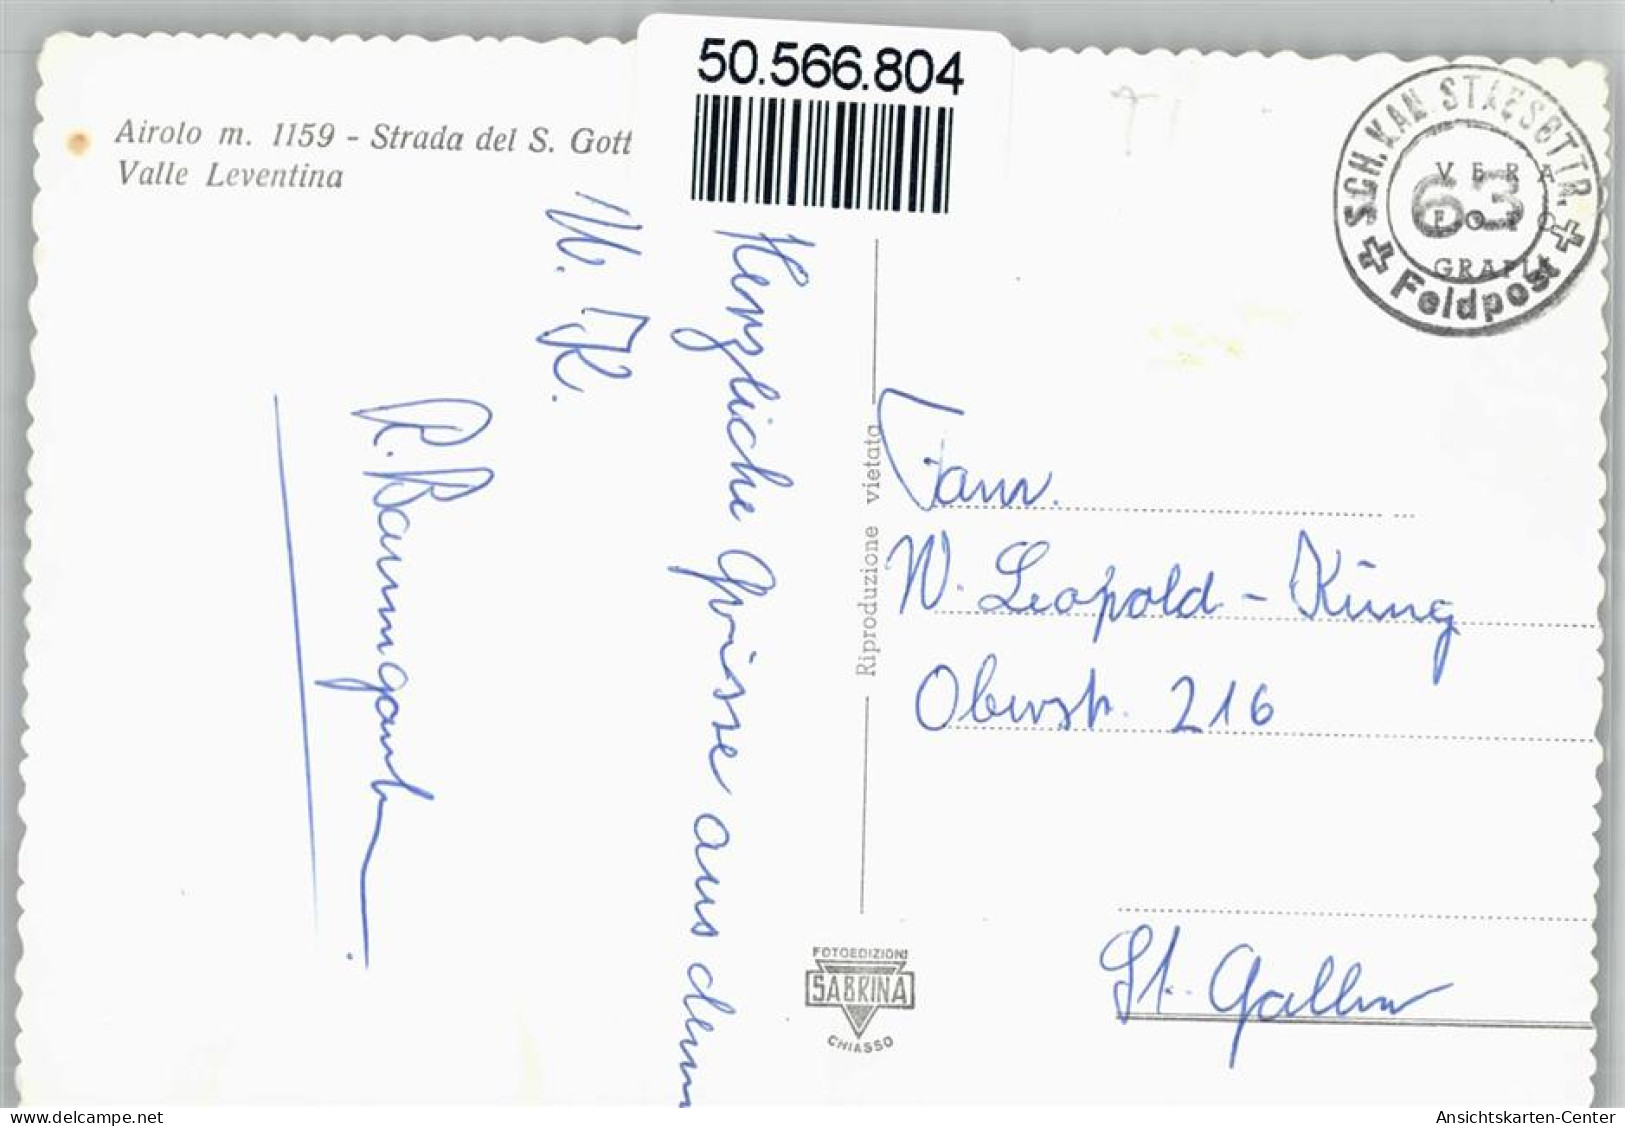 50.566.804
Airolo m. 1159 - Strada del S. Gott
Valle Leventina
Herzliche Grüsse aus dem
W. K.
R. Baumgart
Riproduzione vietata
FOTOEDIZIONI
SABRINA
CHIASSO
VERA
FOTO
GRAFIA
63
Feldpost
Fam.
W. Leopold - Küng
Oberstr. 216
St. Gallen
delcampe.net
Ansichtskarten-Center